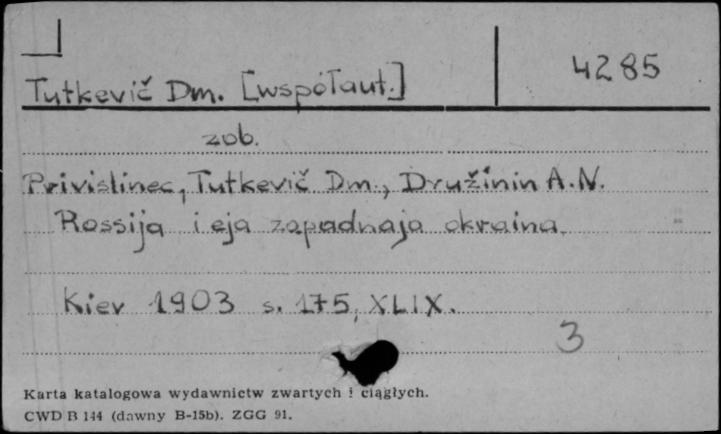 4285
Tutkevič Dm. [współaut.]
zob.
Privislinec, Tutkevič Dm., Družinin A.N.
Rossija i eja zapadnaja okraina.
Kiev 1903 s. 175, XLIX.
3
Karta katalogowa wydawnictw zwartych i ciągłych.
CWD B 144 (dawny B-15b). ZGG 91.